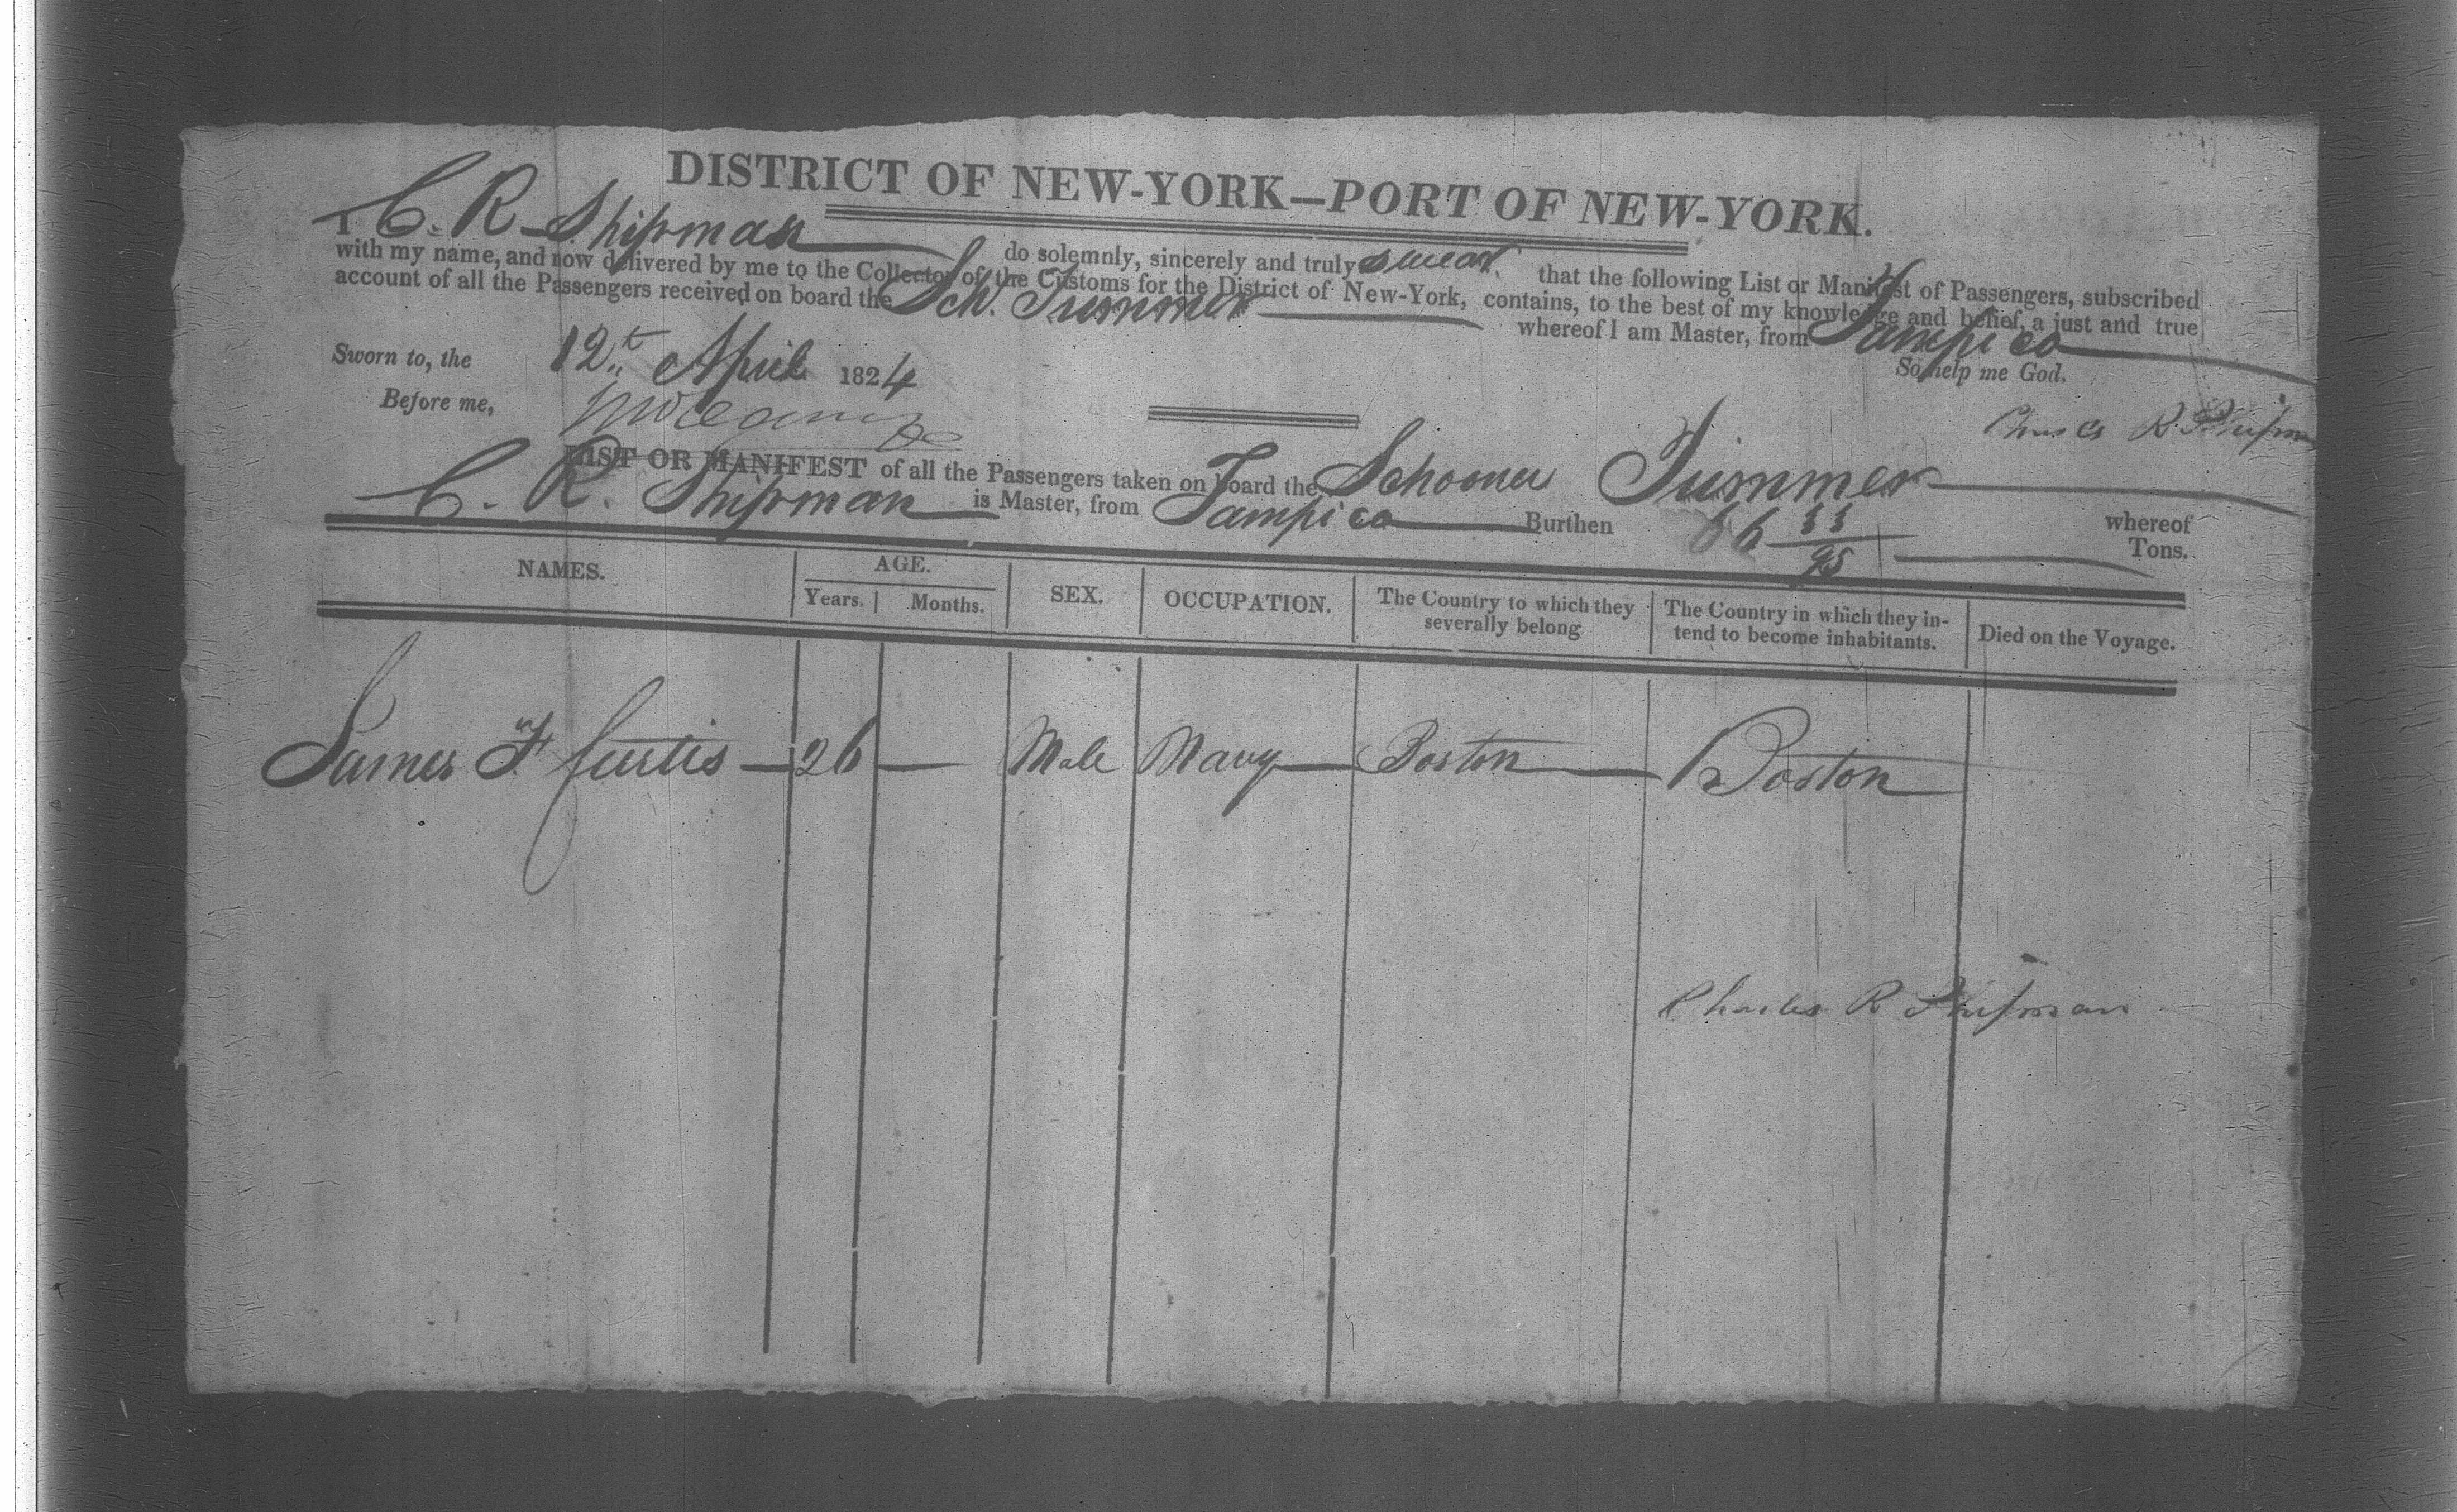 DISTRICT OF NEW-YORK—PORT OF NEW-YORK.
I C. R. Shipman do solemnly, sincerely and truly swear, that the following List or Manifest of Passengers, subscribed
with my name, and now delivered by me to the Collector of the Customs for the District of New-York, contains, to the best of my knowledge and belief, a just and true
account of all the Passengers received on board the Sch. Summer whereof I am Master, from Tampico
So help me God.
Sworn to, the 12th April 1824
Before me,
Charles R Shipman
LIST OR MANIFEST of all the Passengers taken on board the Schooner Summer whereof
C. R. Shipman is Master, from Tampico Burthen 66 33/95 Tons.
NAMES. AGE. SEX. OCCUPATION. The Country to which they severally belong The Country in which they in-tend to become inhabitants. Died on the Voyage.
Years. Months.
James F Curtis — 26 — Male Navy Boston Boston
Charles R Shipman